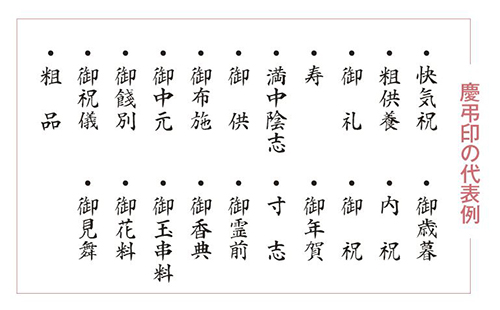 慶弔印の代表例
・快気祝
・粗供養
・御礼
・寿
・満中陰志
・御供
・御布施
・御中元
・御餞別
・御祝儀
・粗品
・御歳暮
・内祝
・御祝
・御年賀
・寸志
・御霊前
・御香典
・御玉串料
・御花料
・御見舞